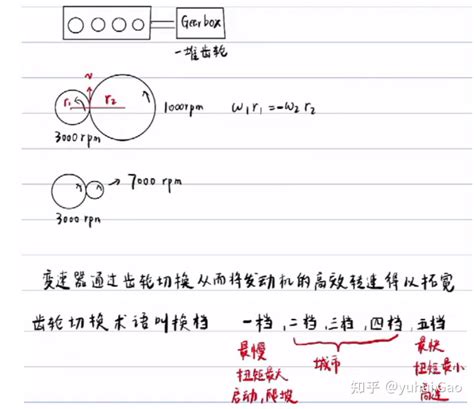 Gearbox
一堆齿轮
v
r₁ r₂ 1000rpm ω₁r₁=-ω₂r₂
3000rpm
7000 rpm
3000 rpm
变速器通过齿轮切换从而将发动机的高效转速得以拓宽
齿轮切换术语叫换档 一档,二档,三档,四档,五档
最慢 城市 最快
扭矩最大 扭矩最小
启动,爬坡 高速
知乎 @yuhui Gao